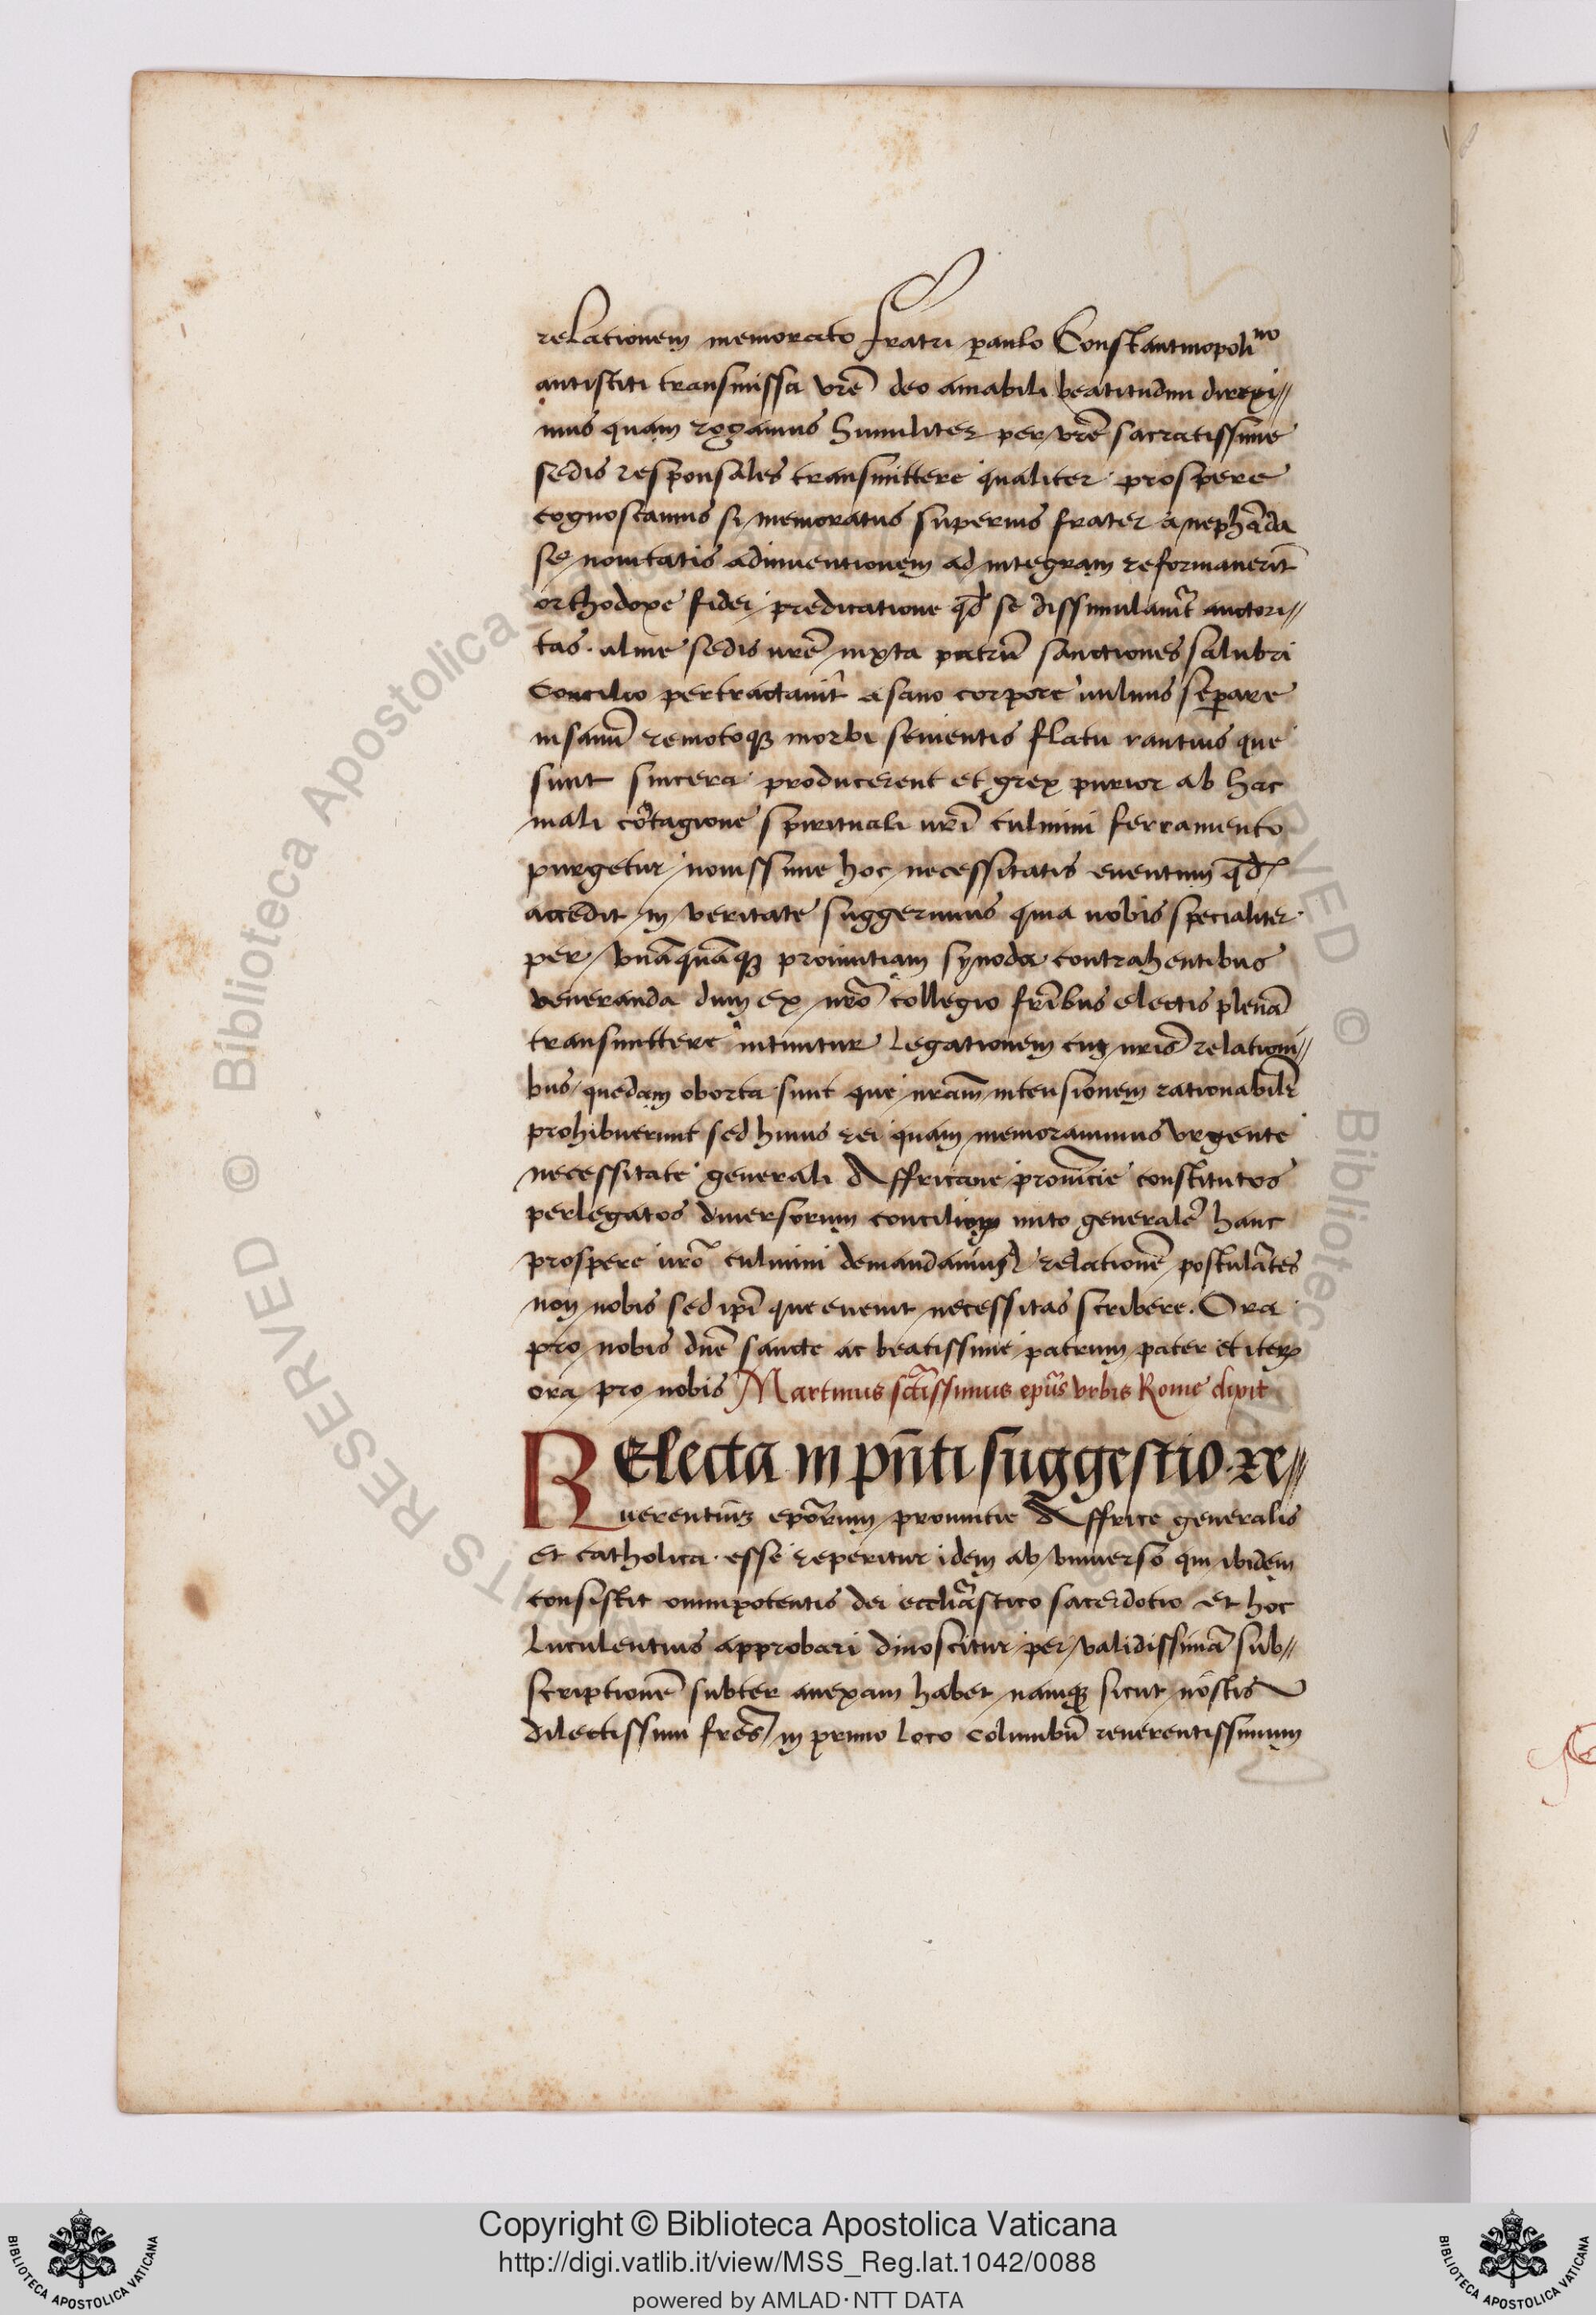 relationem memorato fratri paulo Constantinopolino
antistiti transmissa vrē deo amabili beatitudini direxi//
mus quam rogamus humiliter per vrē sacratissime
sedis responsales transmittere qualiter prospere
cognoscamus si memoratus superius frater a nephāda
se nouitatis adinuentionem ad integram reformauerit
orthodoxe fidei predicatione qd se dissimulauit auctori//
tas alme sedis vrē iuxta patrū sanctiones salubri
Concilio pertractauit a sano corpore uulnus separe
insanū remotoq morbi seuientis flatu cautius que
sunt sincera producerent et grex purior ab hac
mali cōtagione spirituali vrī culmini ferramento
purgetur nouissime hoc necessitatis euentum qd
accedit in veritate suggerimus quia nobis specialiter
per vnāquāq prouintiam synoda contrahentibus
veneranda dum ex nrō collegio frībus electis plenā
transmittere intuitur legationem cum nris relationi//
bus quedam oborta sunt que nrām intensionem rationabilē
prohibuerunt sed huius rei quam memorauimus vrgente
necessitate generali Affricane prouīcie constitutos
per legatos diuersorum concilium inito generalē hanc
prospere vrō culmini demandauimus relationē postulātes
non nobis sed ipī que euenit necessitas scribere. Ora
pro nobis dnē sancte ac beatissime patrum pater et iterum
ora pro nobis Martinus sctīssimus epūs vrbis Rome dixit
RElecta in pn̄ti suggestio re//
uerentium epōrum prouintie Affrice generalis
et catholica esse reperitur idem ab vniuerso qui ibidem
consistit omnipotentis dei eccliāstico sacerdotio et hoc
luculentius approbari dinoscitur per validissimā sub//
scriptionē subter anexam habet namq sicut nostis
dilectissimi frēs in primo loco columbū reuerentissimum
Copyright © Biblioteca Apostolica Vaticana
http://digi.vatlib.it/view/MSS_Reg.lat.1042/0088
powered by AMLAD·NTT DATA